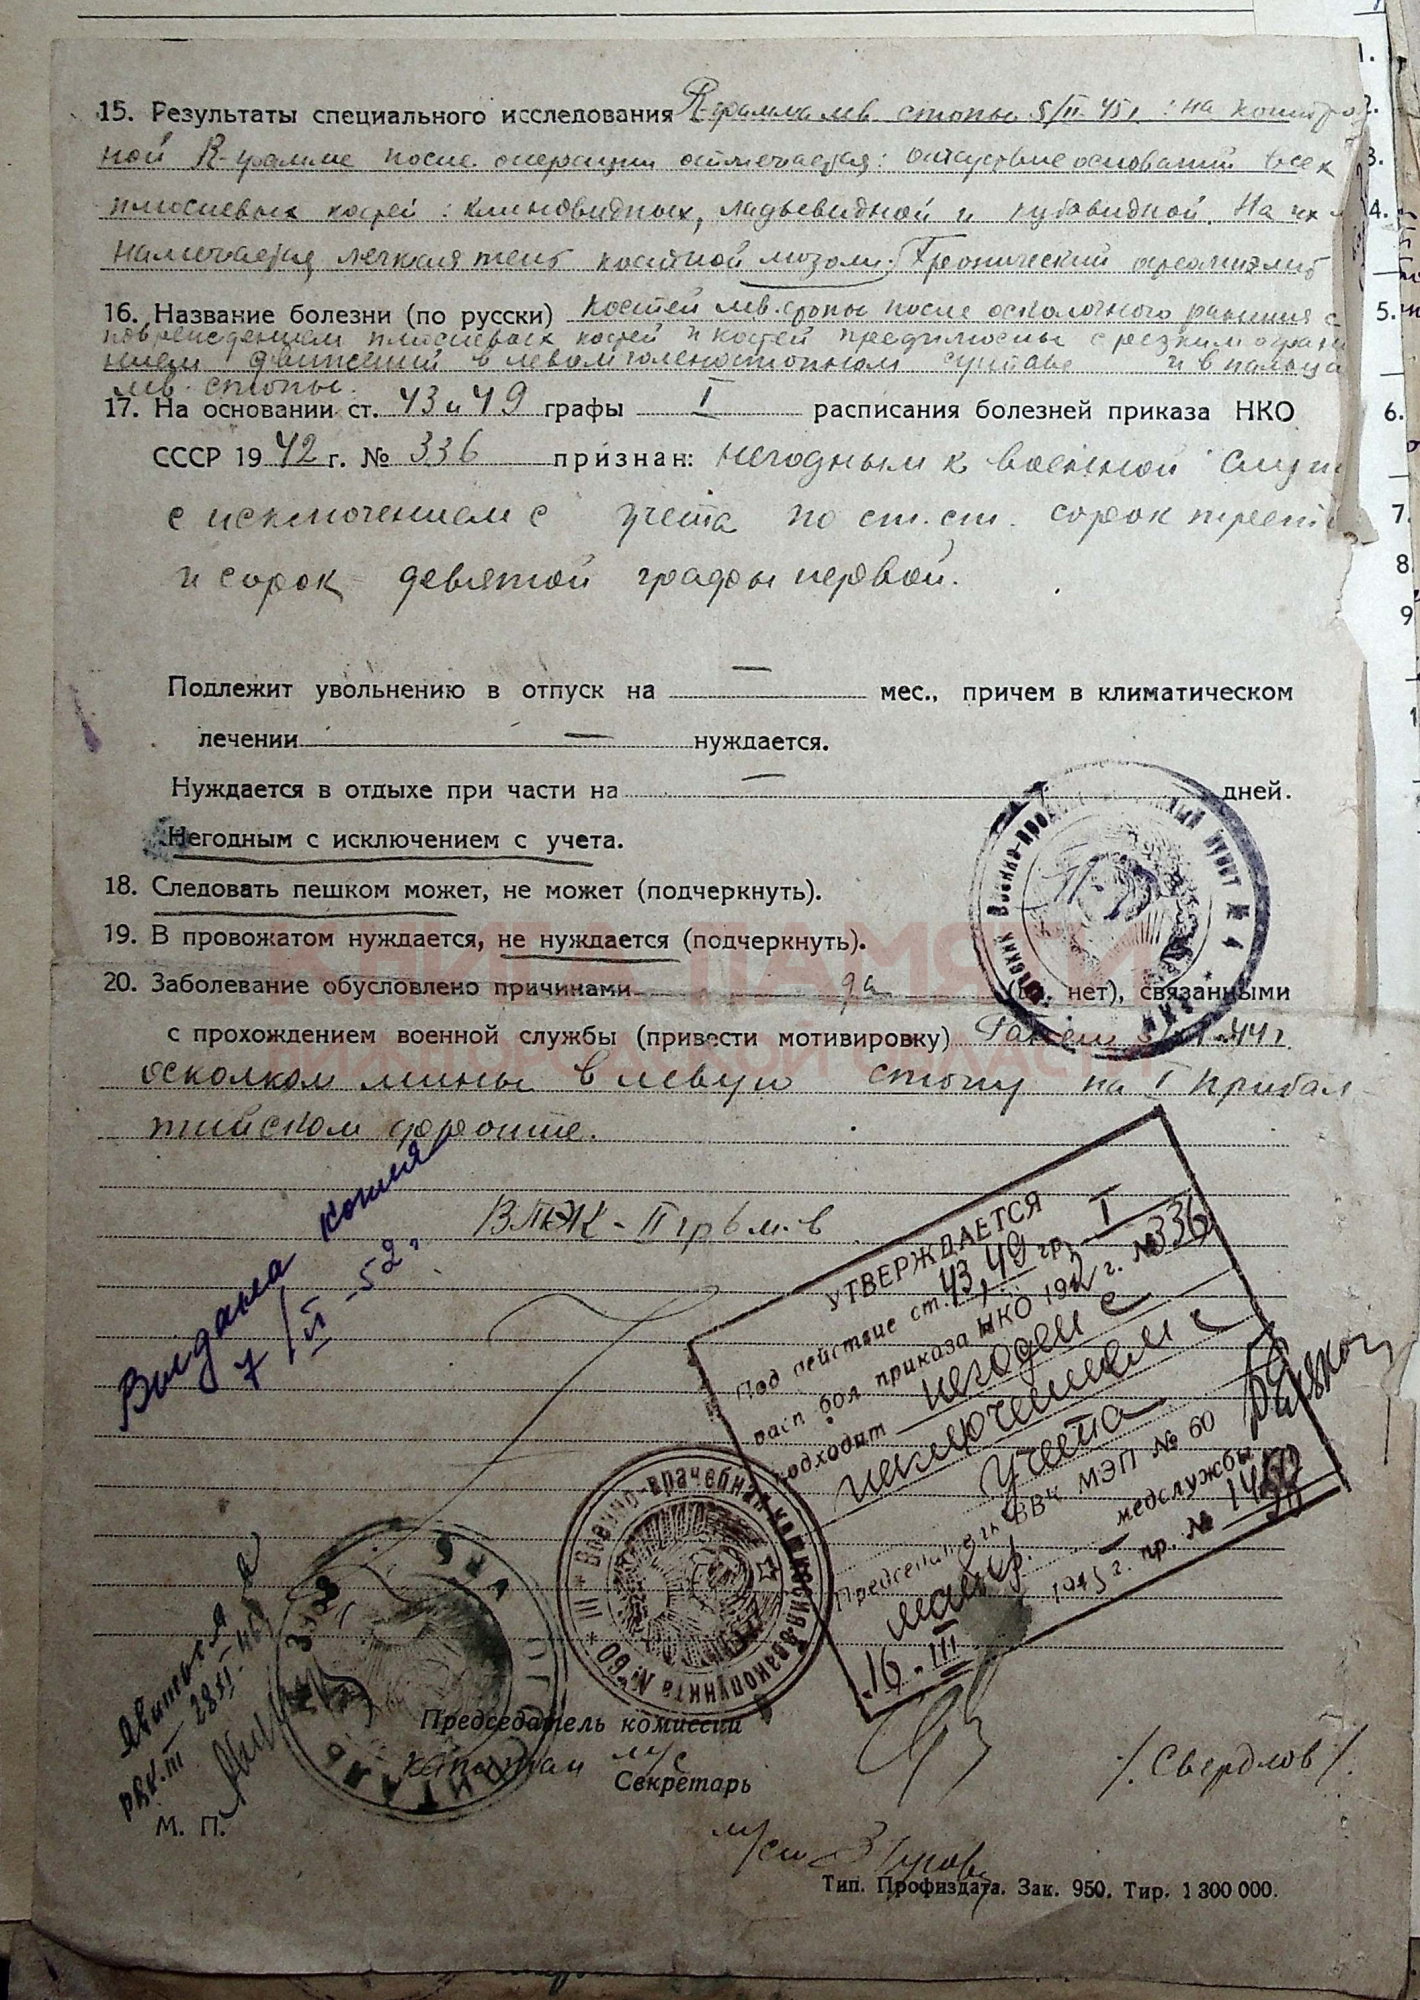 15. Результаты специального исследования R-грамма лев. стопы 5/II-45 г.: на контро
ной R-грамме после операции отмечается: отсутствие оснований всех
плюсневых костей: клиновидных, ладьевидной и кубовидной. На их
намечается легкая тень костной мозоли. Хронический остеомиелит
16. Название болезни (по русски) костей лев. стопы после осколочного ранения с
повреждением плюсневых костей и костей предплюсны с резким ограни
нием движений в левом голеностопном суставе и в пальца
лев. стопы.
17. На основании ст. 43 и 49 графы I расписания болезней приказа НКО
СССР 1942 г. № 336 признан: негодным к военной служ
с исключением с учета по ст.ст. сорок третьей
и сорок девятой графы первой.
Подлежит увольнению в отпуск на — мес., причем в климатическом
лечении — нуждается.
Нуждается в отдыхе при части на — дней.
Негодным с исключением с учета.
18. Следовать пешком может, не может (подчеркнуть).
19. В провожатом нуждается, не нуждается (подчеркнуть).
КНИГА ПАМЯТИ
20. Заболевание обусловлено причинами да (да, нет), связанными
с прохождением военной службы (привести мотивировку) Ранен 44 г.
осколком мины в левую стопу на I Прибал-
тийском фронте.
Военно-продовольственный пункт № 4
ВТЭК - II гр 6 м-в
Выдана копия
7/VI-52 г.
УТВЕРЖДАЕТСЯ
Под действие ст. 43, 49 гр. I
расп бол приказа НКО 1942 г. № 336
подходит негоден с
исключением с
учета
Председатель ВВК МЭП № 60
майор медслужбы
16-III 1945 г. пр. №
Военно-врачебная комиссия Эвакопункта № 60
Явиться
РВК-III 28/XI-46
ГОСПИТАЛЬ
Председатель комиссии
капитан м/с /Свердлов/.
Секретарь
М. П.
Тип. Профиздата. Зак. 950. Тир. 1 300 000.